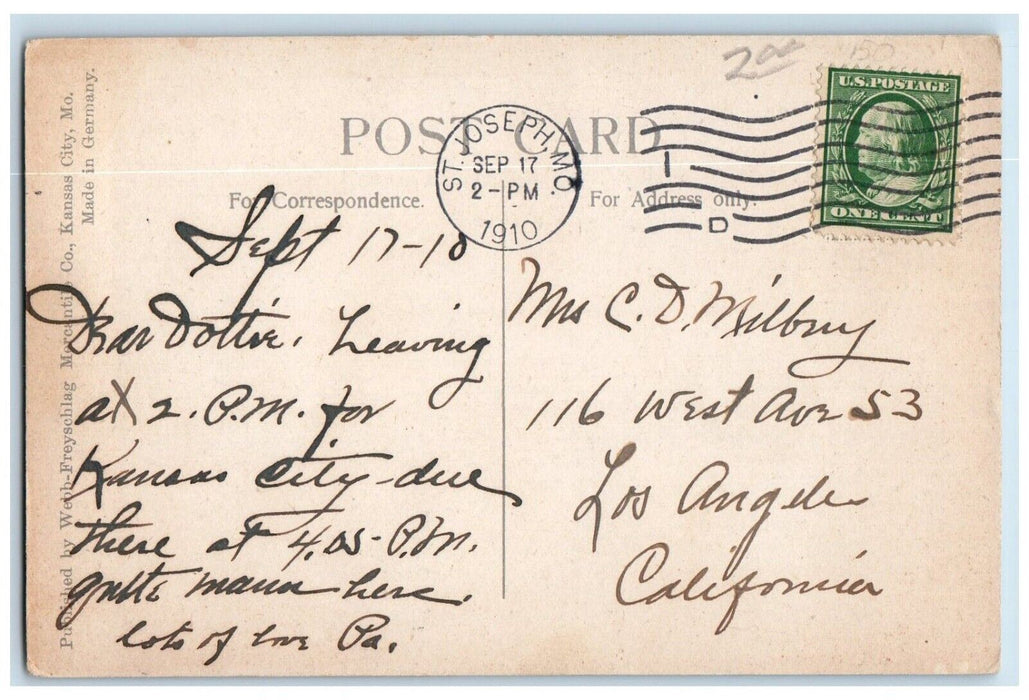 200
150
U.S. POSTAGE
ONE CENT
POST CARD
ST. JOSEPH, MO.
SEP 17
2-1PM
1910
1
D
For Correspondence.
For Address only.
Sept 17-10
Dear Dottie. Leaving
at 2. P.M. for
Kansas City-due
there at 4.05-P.M.
here.
lots of love Pa.
Mrs C. D. Milbury
116 West Ave 53
Los Angeles
California
Published by Webb-Freyschlag Mercantile Co., Kansas City, Mo.
Made in Germany.